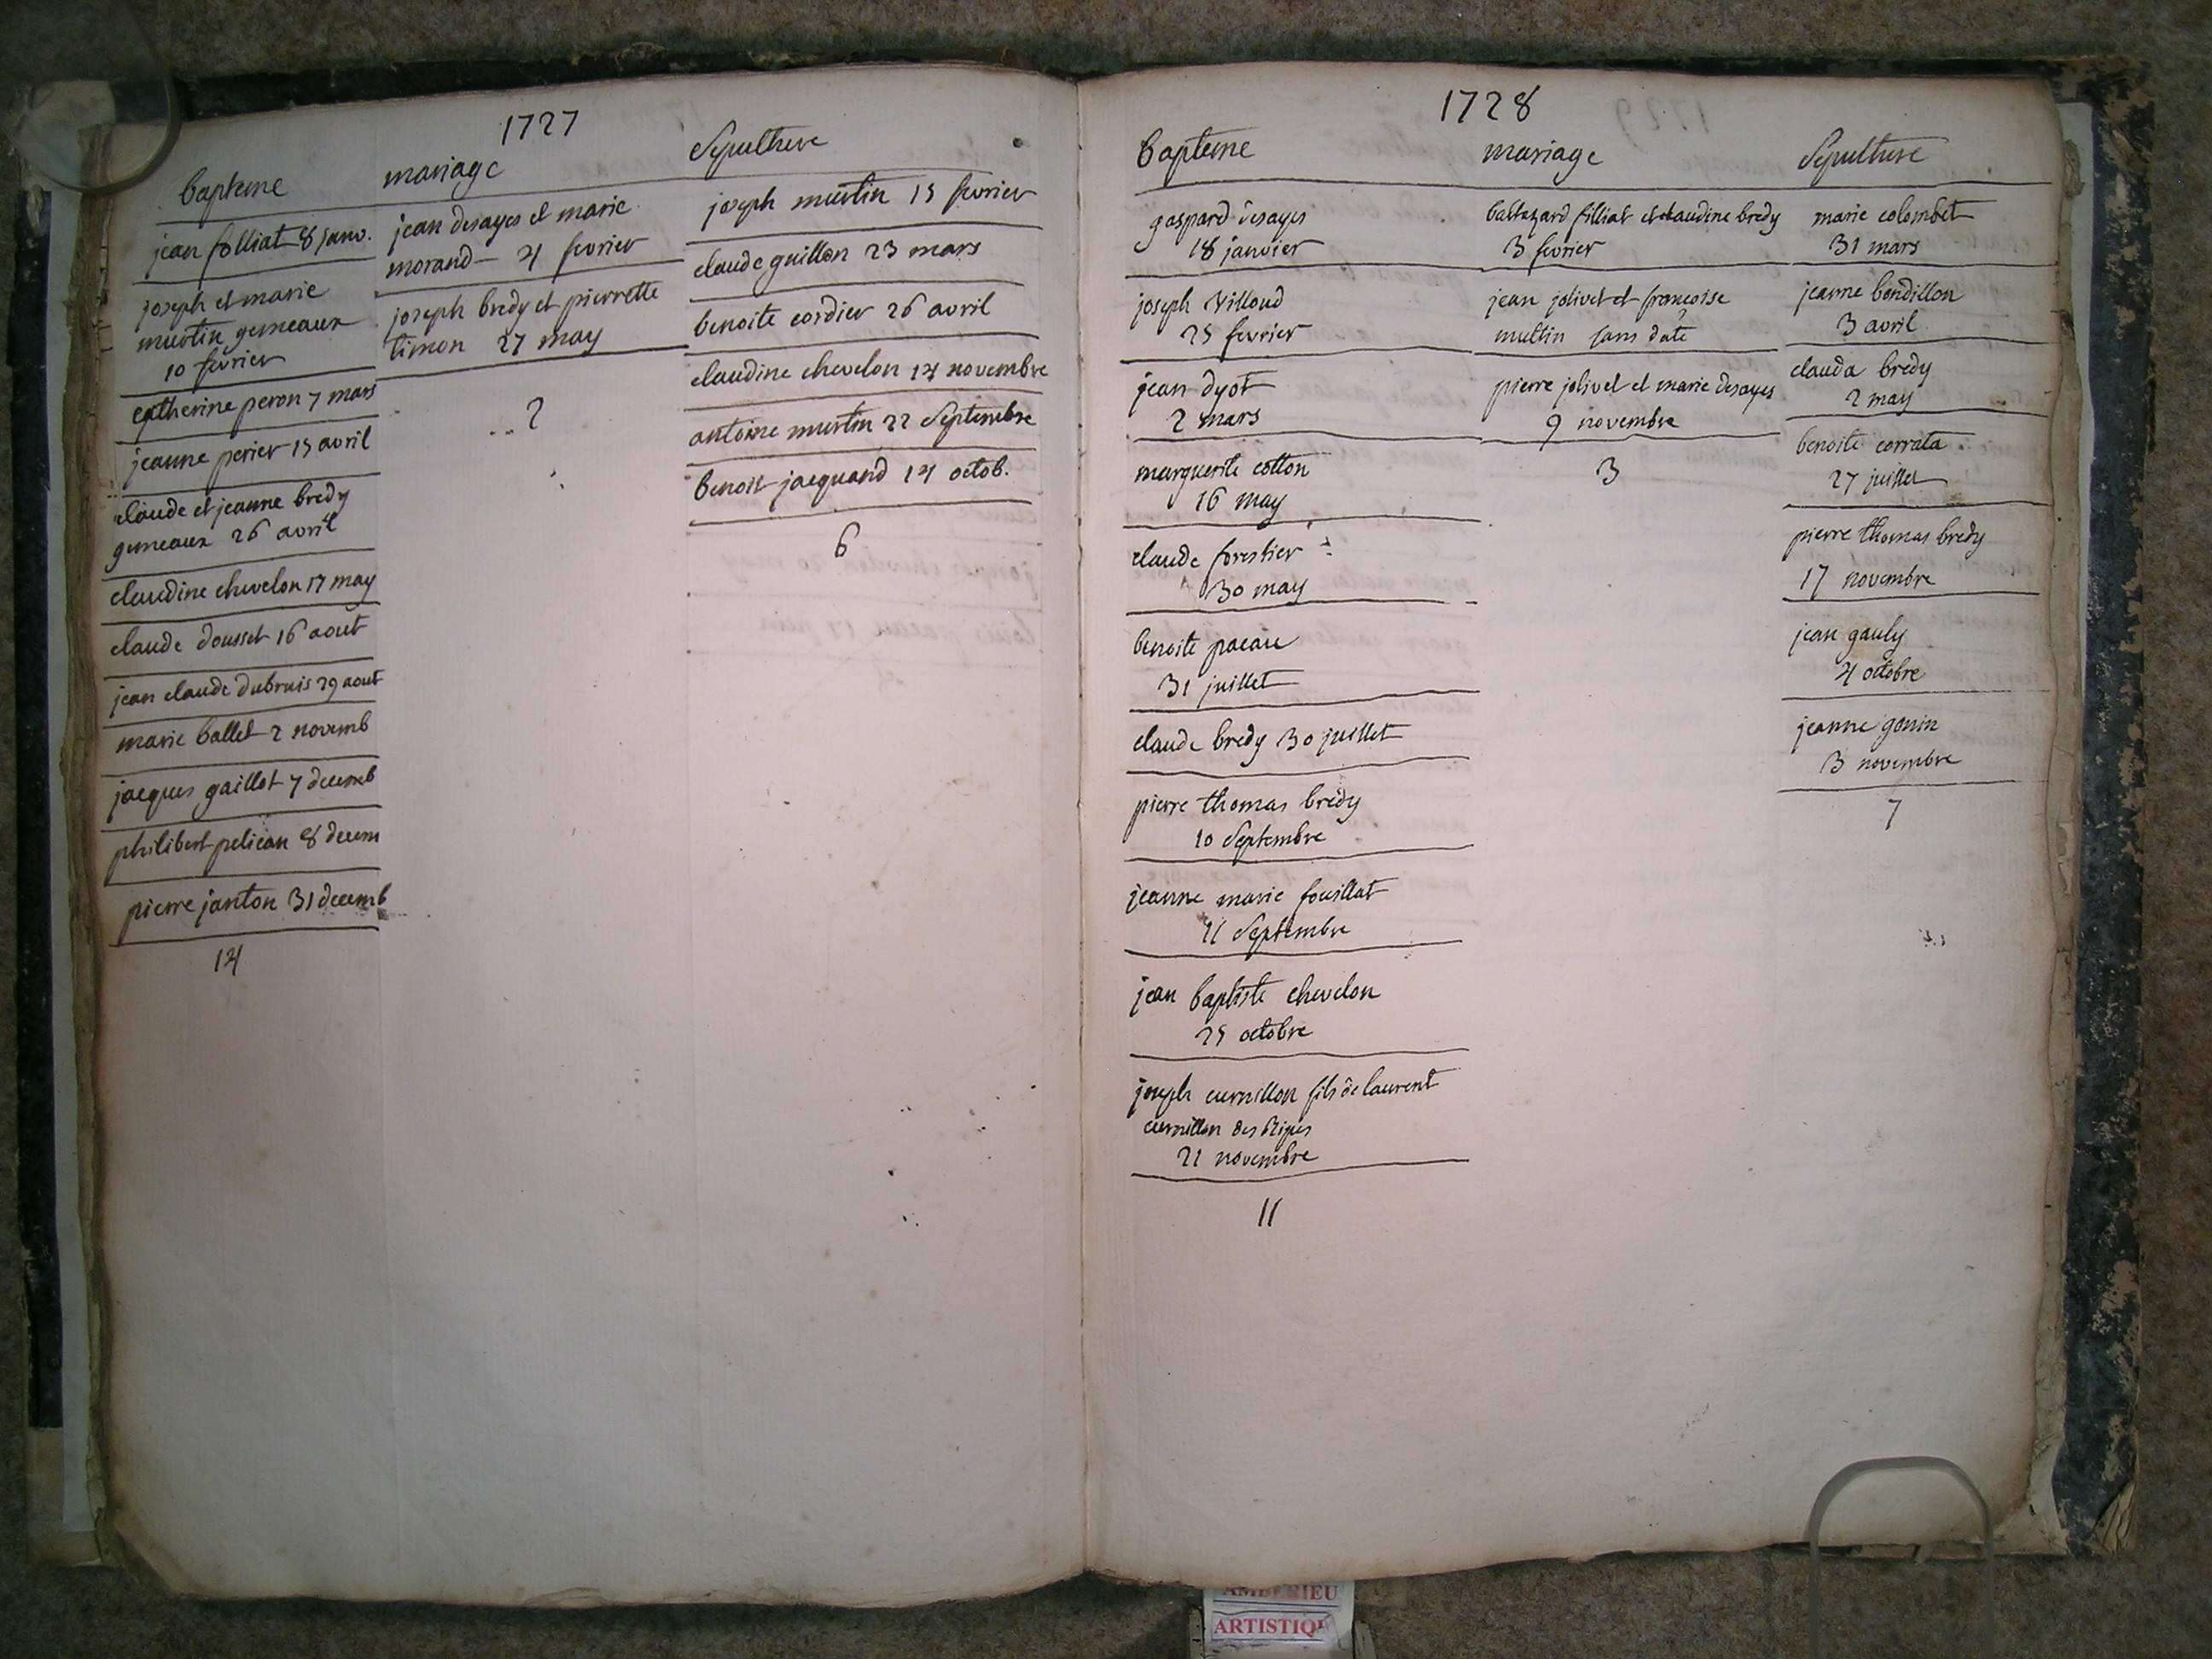 1727
bapteme
jean folliat 8 janv.
joseph et marie
murtin gemeaux
10 fevrier
catherine peron 7 mars
jeanne perier 15 avril
claude et jeanne bredy
gemeaux 26 avril
claudine chevelon 17 may
claude dousset 16 aout
jean claude dubruis 29 aout
marie ballet 2 novemb
jacques gaillot 7 decemb
philibert pelican 8 decem
pierre janton 31 decemb
14
mariage
jean desayes et marie
morand 4 fevrier
joseph bredy et pierrette
timon 27 may
2
Sepulture
joseph murtin 15 fevrier
claude guillon 23 mars
benoite cordier 26 avril
claudine chevelon 14 novembre
antoine murtin 22 Septembre
benoit jacquand 14 octob.
6
1728
bapteme
gaspard desayes
18 janvier
joseph Villoud
25 fevrier
jean dyot
2 mars
marguerite cotton
16 may
claude forestier
30 may
benoite pacau
31 juillet
claude bredy 30 juillet
pierre thomas bredy
10 Septembre
jeanne marie fouillat
11 Septembre
jean baptiste chevelon
25 octobre
joseph curnillon fils de laurent
curnillon des
21 novembre
11
mariage
baltazard filliat et claudine bredy
3 fevrier
jean jolivet et françoise
multin sans date
pierre jolivet et marie desayes
9 novembre
3
Sepulture
marie colombet
31 mars
jeanne bondillon
3 avril
clauda bredy
2 may
benoite corrata
27 juillet
pierre thomas bredy
17 novembre
jean gauly
4 octobre
jeanne gonin
3 novembre
7
ARTISTIQ